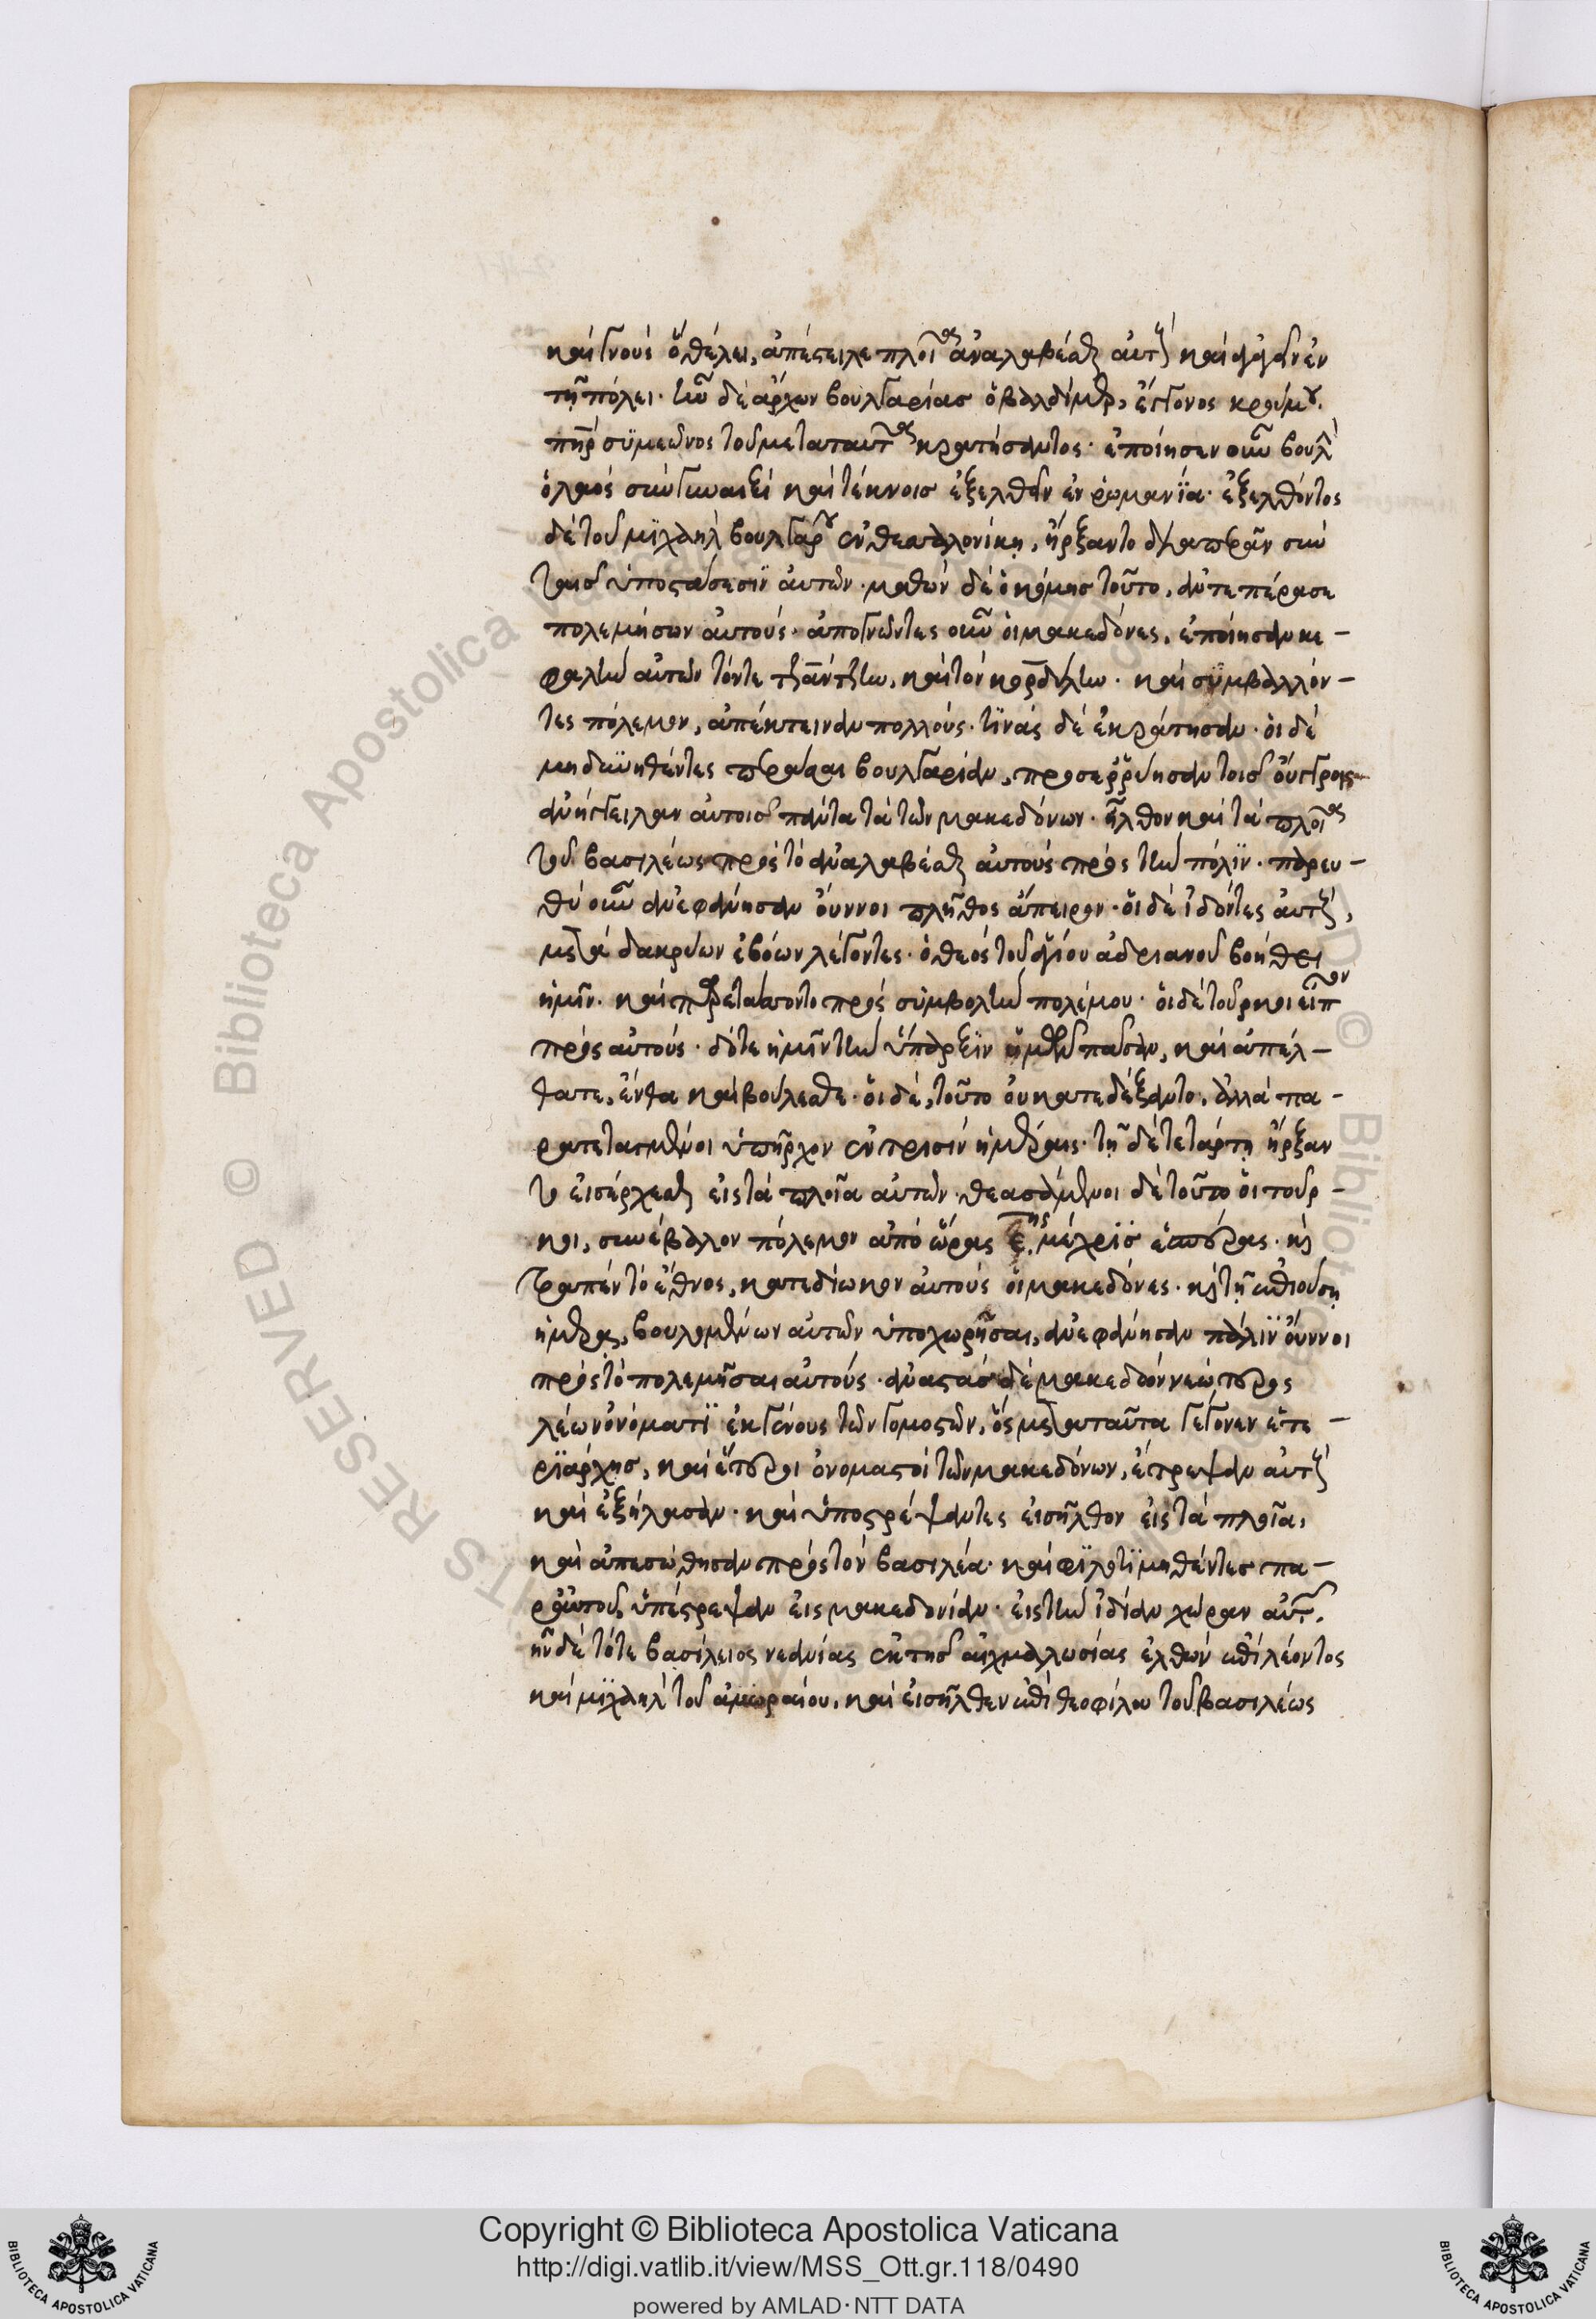 καὶ γνοὺς ὃ θέλει, ἀπέστειλε πλοῖα ἀναλαβέσθαι αὐτοὺς καὶ ἀγαγεῖν ἐν
τῇ πόλει. ἦν δὲ ἄρχων βουλγαρίας ὁ βαλδίμερ, ἔγγονος κρούμου.
πὴρ συμεὼνος τοῦ μεταταῦτα κρατήσαντος. ἐποίησεν οὖν βουλὴν
ὁ λαὸς σὺν γυναιξὶ καὶ τέκνοις ἐξελθεῖν ἐν ῥωμανΐα. ἐξελθόντος
δὲ τοῦ μϊχαὴλ βουλγάρου ἐν θεσαλονίκῃ, ἤρξαντο διαπερᾶν σὺν
ταῖς ὑποστάσεσϊν αὐτῶν. μαθὼν δὲ ὁ κόμης τοῦτο, ἀντεπέρασε
πολεμήσων αὐτούς. ἀπογνῶντες οὖν οἱ μακεδόνες, ἐποίησαν κε-
φαλὴν αὐτῶν τόντε τζάντζην, καὶ τὸν κορδύλην. καὶ συμβαλλόν-
τες πόλεμον, ἀπέκτειναν πολλούς. τϊνὰς δὲ ἐκράτησαν. οἱ δὲ
μὴ δυνηθέντες περάσαι βουλγαρίαν, προσερρύησαν τοῖς οὔγγροις
ἀνήγγειλαν αὐτοῖς πάντα τὰ τῶν μακεδόνων. ἦλθον καὶ τὰ πλοῖα
τοῦ βασιλέως πρὸς τὸ ἀναλαβέσθαι αὐτοὺς πρὸς τὴν πόλϊν. παρευ-
θὺ οὖν ἀνεφάνησαν οὖννοι πλῆθος ἄπειρον. οἱ δὲ ἰδόντες αὐτοὺς,
μετὰ δακρύων ἐβόων λέγοντες. ὁ θεὸς τοῦ ἁγίου ἀδριανοῦ βοήθει
ἡμῖν. καὶ παρετάττοντο πρὸς συμβολὴν πολέμου. οἱ δὲ τοῦρκοι εἶπον
πρὸς αὐτούς. δότε ἡμῖν τὴν ὕπαρξϊν ὑμῶν πᾶσαν, καὶ ἀπέλ-
θατε, ἔνθα καὶ βούλεσθε. οἱ δὲ, τοῦτο οὐ κατεδέξαντο. ἀλλὰ πα-
ρατεταγμένοι ὑπῆρχον ἐν τρισὶν ἡμέραις. τῇ δὲ τετάρτῃ ἤρξαν
το εἰσέρχεσθαι εἰς τὰ πλοῖα αὐτῶν. θεασάμενοι δὲ τοῦτο οἱ τοῦρ-
κοι, συνέβαλον πόλεμον ἀπὸ ὥρας ε̄ης μέχρϊς ἑσπέρας. κὶ
τραπὲν τὸ ἔθνος, κατεδίωκον αὐτοὺς οἱ μακεδόνες. κὶ τῇ ἐπιούσῃ
ἡμέρᾳ, βουλομένων αὐτῶν ὑποχωρῆσαι, ἀνεφάνησαν πάλϊν οὖννοι
πρὸς τὸ πολεμῆσαι αὐτούς. ἀναστὰς δὲ μακεδὼν νεώτερος
λέων ὀνόματϊ ἐκ γένους τῶν γομοστῶν, ὃς μετὰ ταῦτα γέγονεν ἑτε-
ρϊάρχης, καὶ ἕτεροι ὀνομαστοὶ τῶν μακεδόνων, ἔτρεψαν αὐτοὺς
καὶ ἐξήλασαν. καὶ ὑποστρέψαντες εἰσῆλθον εἰς τὰ πλοῖα,
καὶ ἀπεσώθησαν πρὸς τὸν βασιλέα. καὶ φϊλοτϊμηθέντες πα-
ρ' αὐτοῦ, ὑπέστρεψαν εἰς μακεδονίαν. εἰς τὴν ἰδίαν χώραν αὐτῶν.
ἦν δὲ τότε βασίλειος νεανίας ἐκ τῆς αἰχμαλωσίας ἐλθὼν ἐπὶ λέοντος
καὶ μϊχαὴλ τοῦ ἀμωραίου, καὶ εἰσῆλθεν ἐπὶ θεοφίλου τοῦ βασιλέως
Copyright © Biblioteca Apostolica Vaticana
http://digi.vatlib.it/view/MSS_Ott.gr.118/0490
powered by AMLAD·NTT DATA